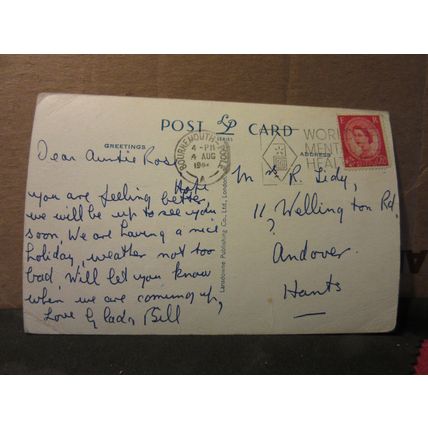 POST LP CARD
SERIES
GREETINGS
ADDRESS
BOURNEMOUTH-POOLE
4-PM
4 AUG
196
A
WORLD
MENTAL
HEALTH
Dear Auntie Rose
Hope
you are feeling better,
we will be up to see you
soon. We are having a nice
holiday, weather not too
bad. Will let you know
when we are coming up,
Love Glad & Bill
Lansdowne Publishing Co., Ltd., London
Mrs R. Tidy,
11 Wellington Rd,
?
Andover.
Hants